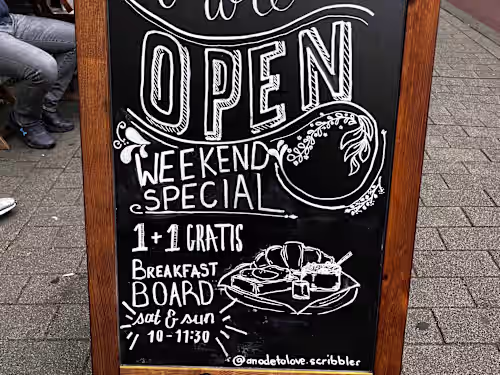 we're
OPEN
WEEKEND
SPECIAL
1+1 GRATIS
BREAKFAST
BOARD
sat & sun
10-11:30
@anodetolove.scribbler